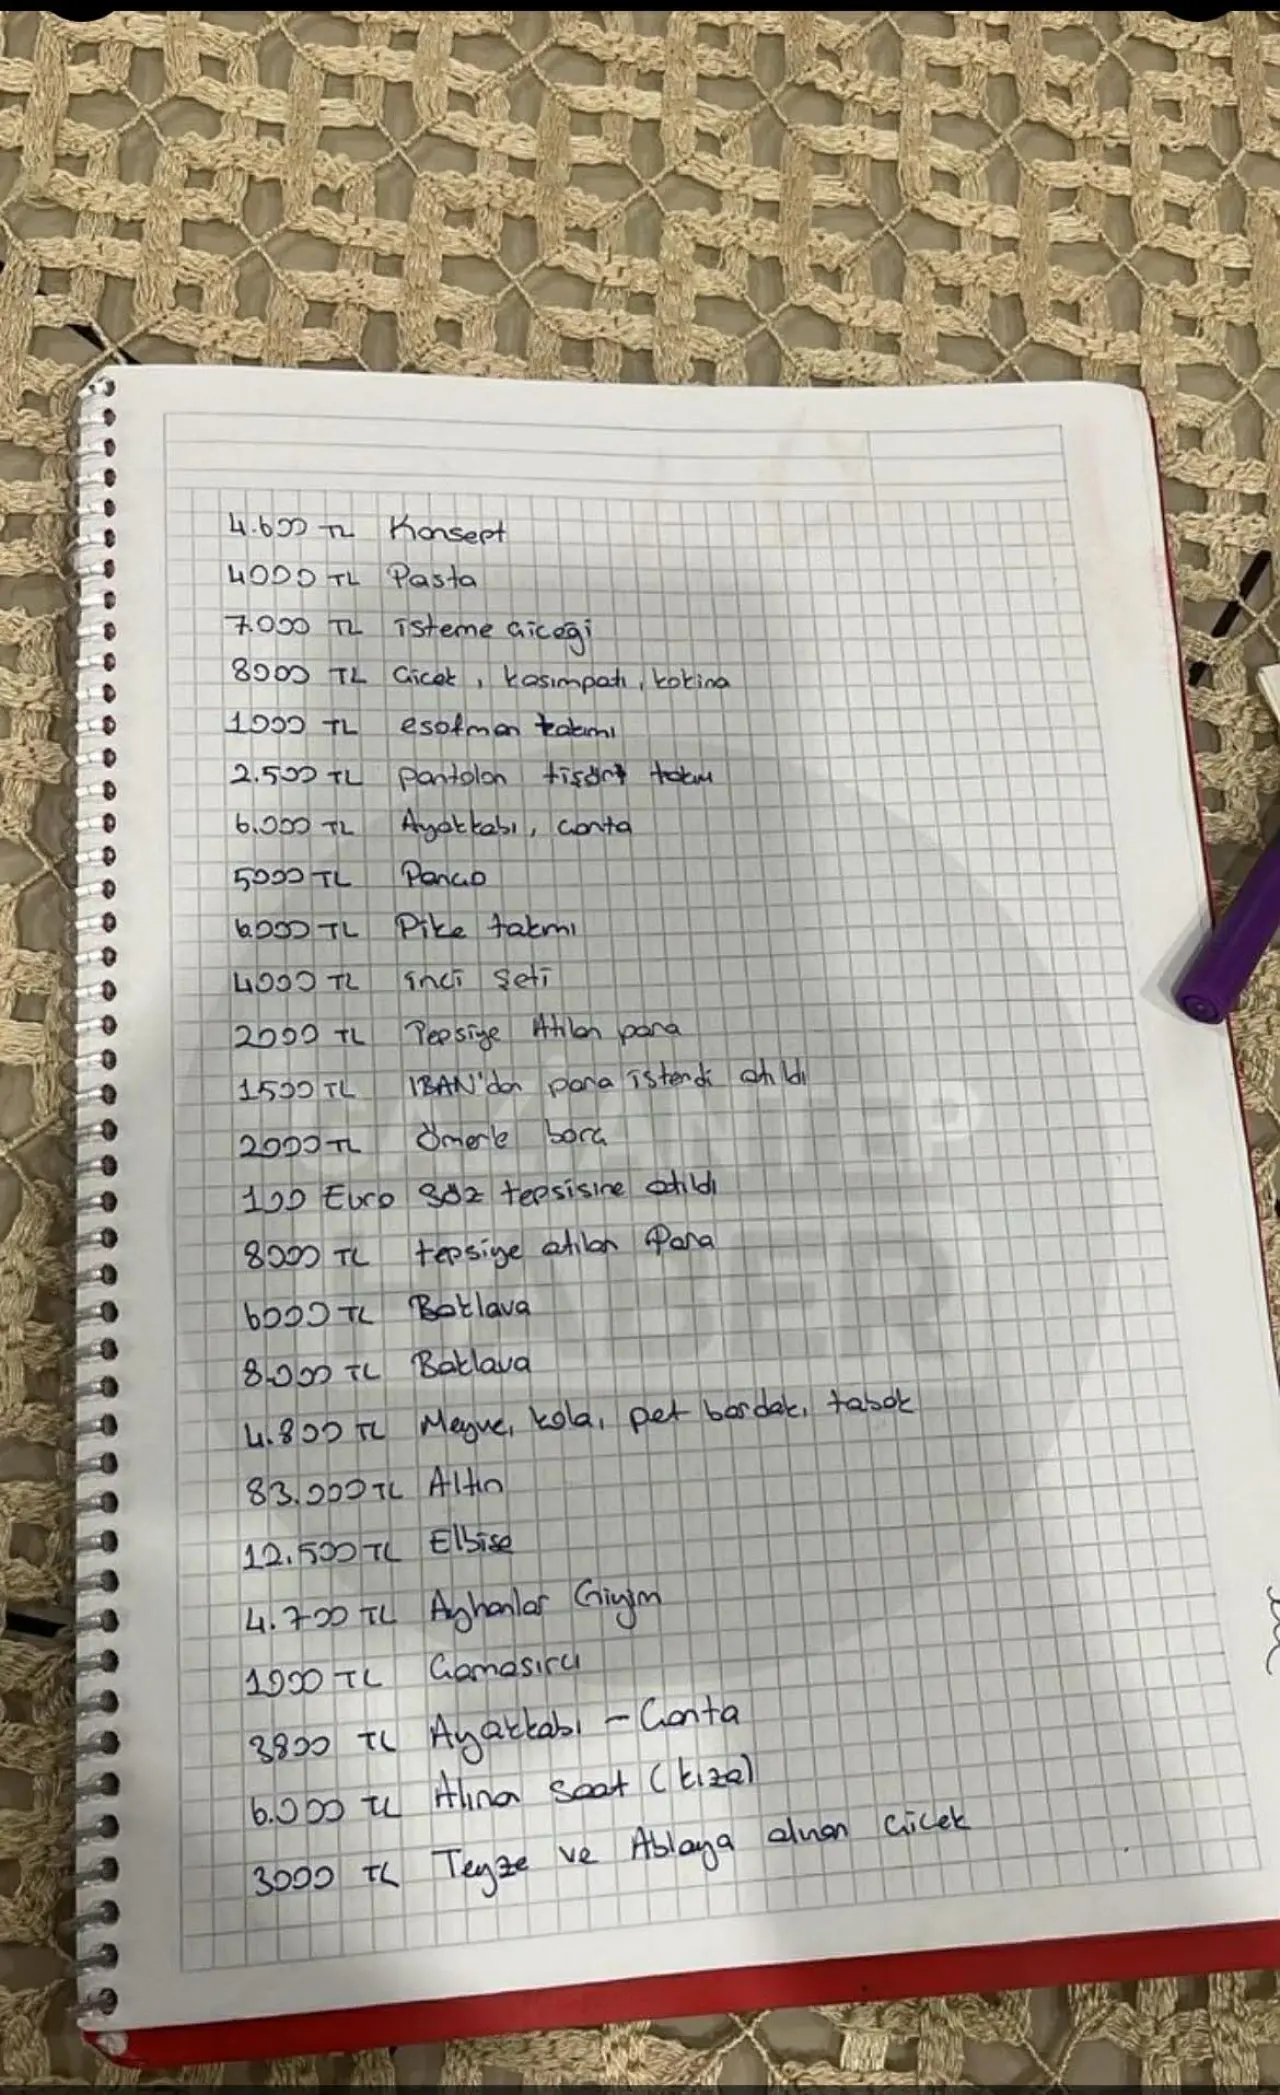 4.600 TL Konsept
4000 TL Pasta
7.000 TL isteme çiçeği
8000 TL Çiçek, kasımpatı, kokina
1000 TL esofman takımı
2.500 TL pantolon tişört takım
6.000 TL Ayakkabı, çanta
5000 TL Panço
6.000 TL Pike takmı
4000 TL inci Seti
2000 TL Tepsiye Atılan para
1500 TL IBAN'dan para istendi atıldı
2000 TL Ömerle borç
100 Euro Söz tepsisine atıldı
8000 TL tepsiye atılan Para
6000 TL Baklava
8.000 TL Baklava
4.800 TL Meyve, kola, pet bardak, tabak
83.000 TL Altın
12.500 TL Elbise
4.700 TL Ayhanlar Giyim
1000 TL Çamaşırcı
3800 TL Ayakkabı - Çanta
6.000 TL Alına Saat (kıza)
3000 TL Teyze ve Ablaya alınan Çiçek